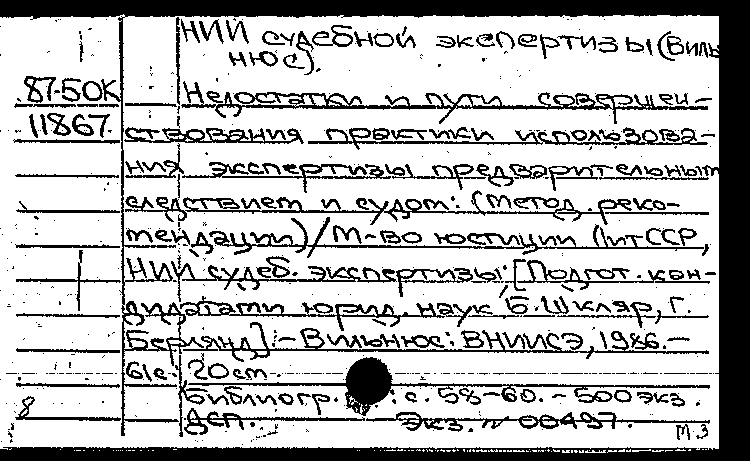 НИИ судебной экспертизы (Виль-
нюс).
87-50К Недостатки и пути совершен-
11867. ствования практики использова-
ния экспертизы предварительным
следствием и судом: (Метод. реко-
мендации) / М-во юстиции ЛитССР,
НИИ судеб. экспертизы; [Подгот. кан-
дидатами юрид. наук Б. Шкляр, Г.
Берлянд]. - Вильнюс: ВНИИСЭ, 1986. -
61 с. 20 см.
Библиогр. : с. 58-60. - 500 экз.
8 ДСП. Экз. N 00497.
М.З